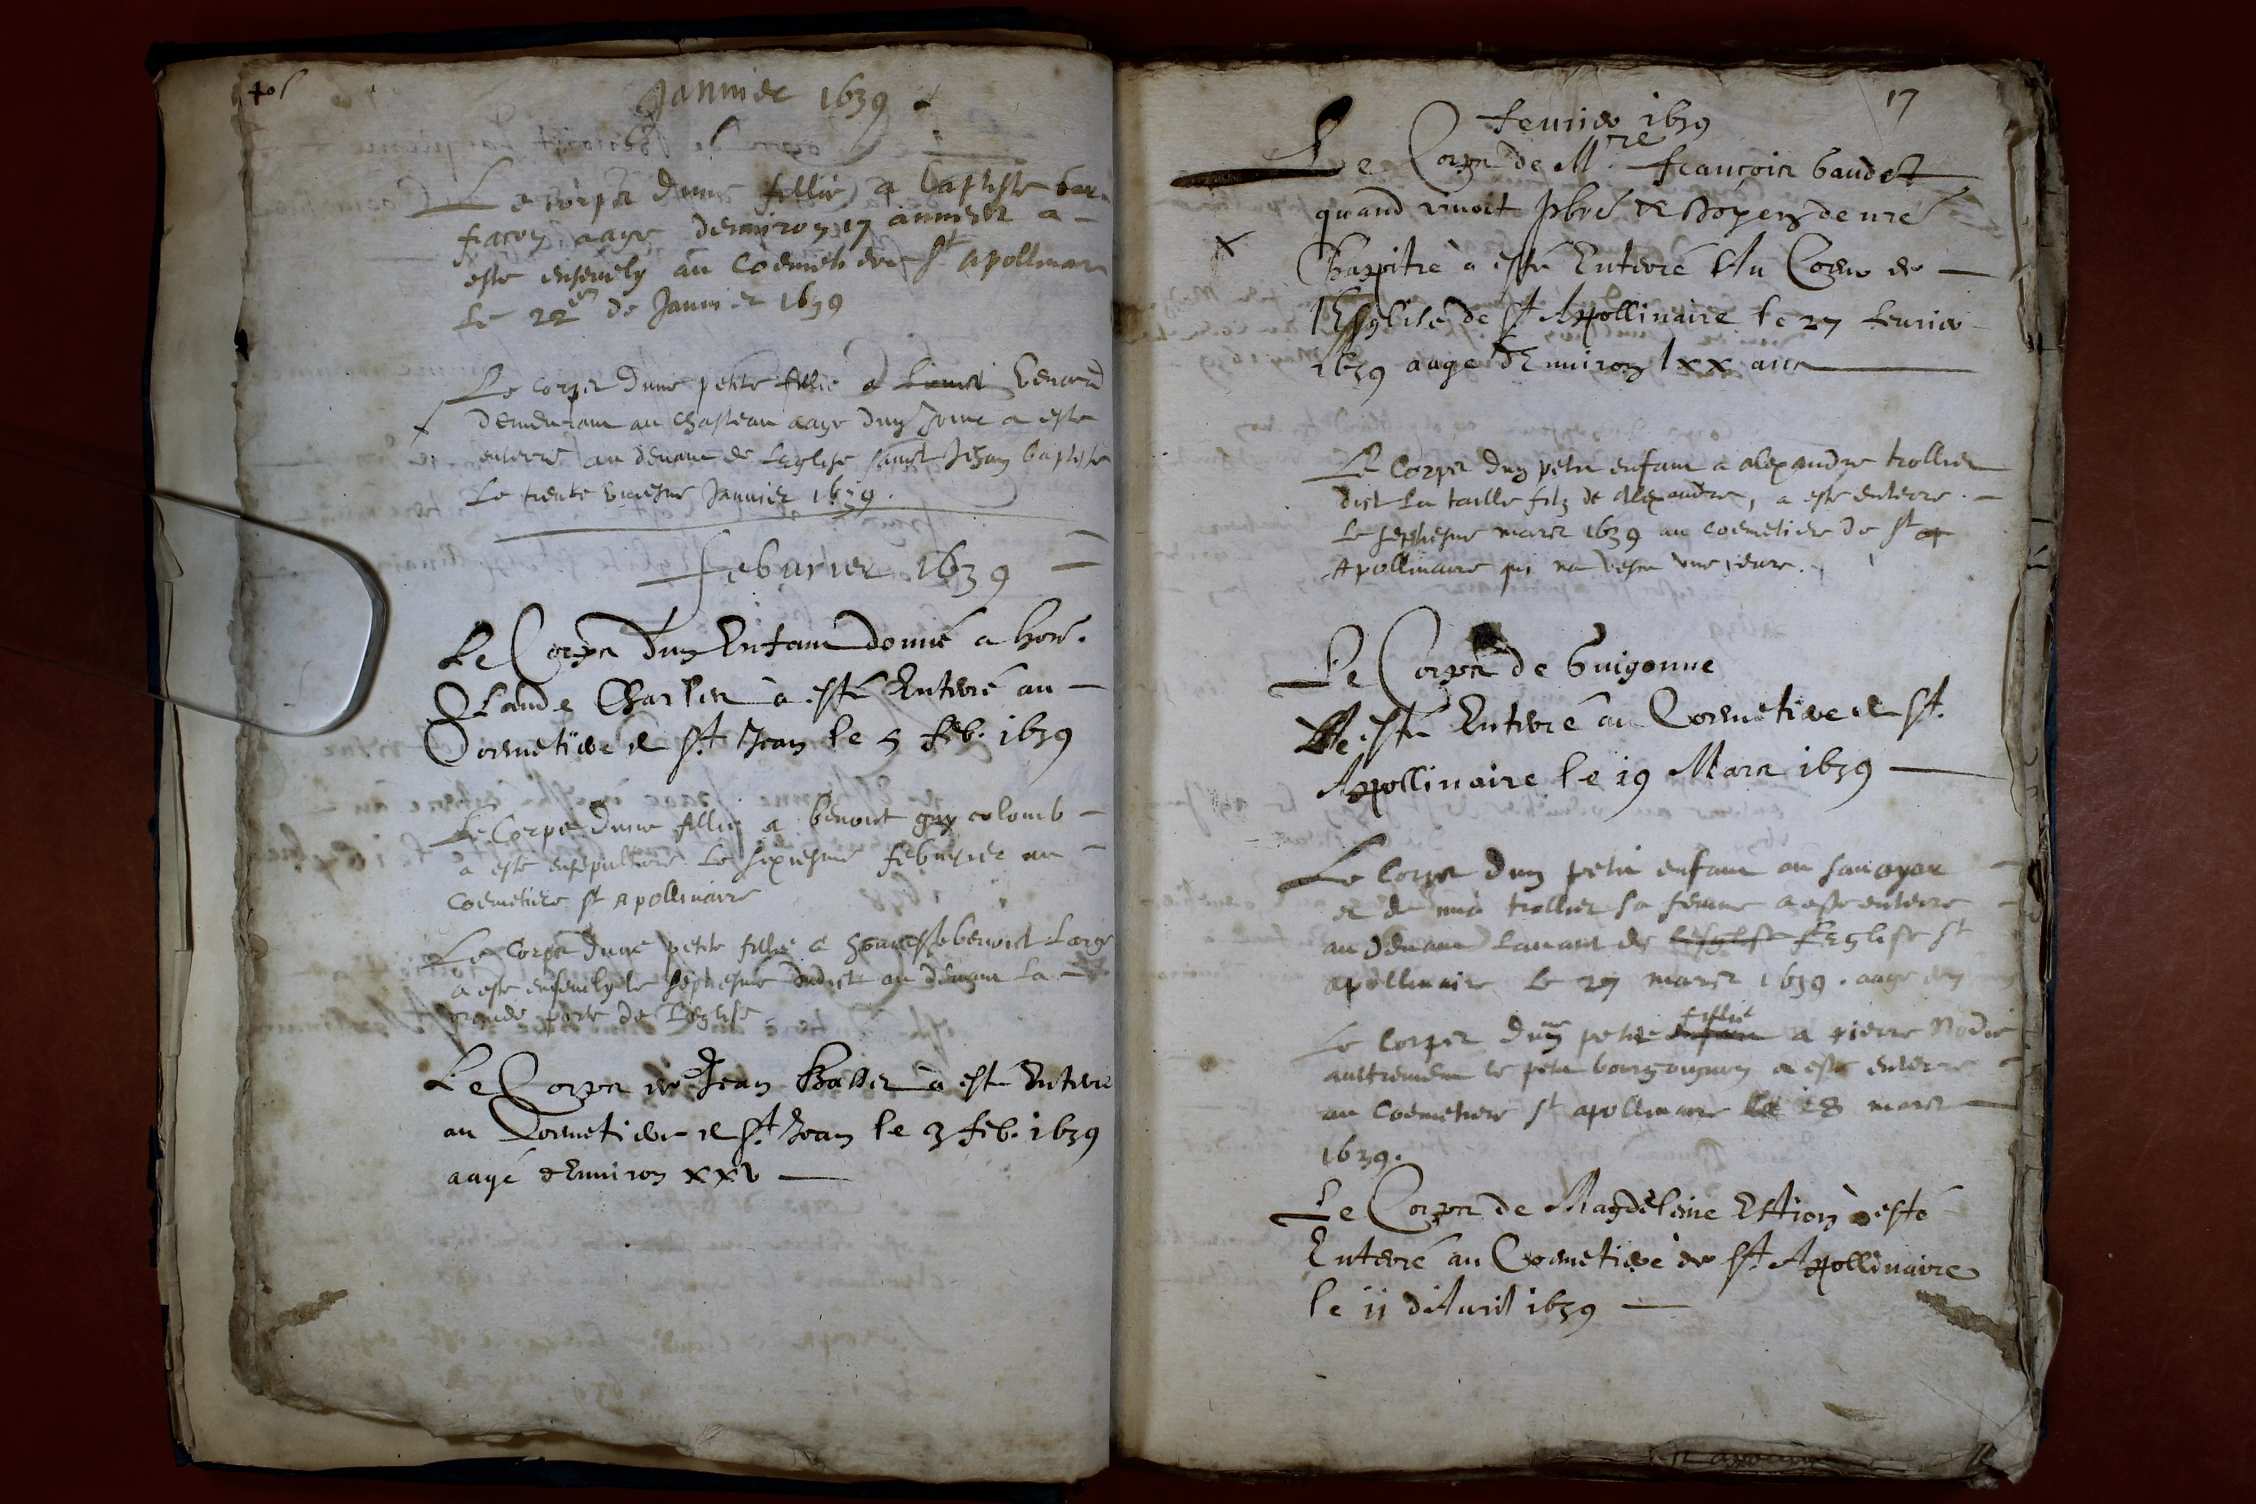 Januier 1639
Le corps dune fillie a baptiste bar
fiacon aage denuiron 17 annees a
este enseuely au Coemetiere St Apollinare
Le 22e de Januier 1639
Le corps dune petite fillie a Benard
demeurant au chasteau aage dung Jour a este
enterre au deuant de Leglise sainct Jehan baptiste
Le trente uniesme Januier 1639.
Feburier 1639
Le Corps dun Enfant donné a hon.
Claude Charlin à esté Enterré au
Coemetiere de St Jean le 5 feb. 1639
Le Corps dune fillie a benoict guy colomb
a este ensepulture Le sixiesme feburier au
Coemetiere St Apollinaire
Le Corps dune petite fillie a honneste benoict Large
a este enseuely le septiesme dudict au deuant La
grande porte de Leglise
Le Corps de Jean à esté Enterré
au Coemetiere de St Jean le 3 feb. 1639
aagé dEnuiron xxv
17
feurier 1639
Le Corps de Mre françois Gaudet
quand viuoit pbre et Doyen de nre
Chappitre à esté Enterré Au Coeur de
lEsglise de St Appollinaire le 27 feurier
1639 aage dEnuiron lxx ans
Le Corps dung petit enfant a alexandre trollier
dict La taille filz de Alexandre, a este enterre
Le septiesme mars 1639 au coemetiere de St
Apollinaire qui na vescu une heure.
Le Corps de Guigonne
A esté Enterré au Coemetiere de St.
Appollinaire le 19 Mars 1639
Le Corps dung petit enfant au sauoyar
et de trollier sa femme a este enterre
au deuant Lauant de lesglise LEglise St
apollinaire Le 27 mars 1639. aage
Le Corps dune petite enfant fillie a pierre Nodie
aultrement le petit bourgoignon a este enterre
au Coemetiere St apollinaire le 28 mars
1639.
Le Corps de Magdeleine Estion à esté
Enterré au Coemetiere de St. Appollinaire
le 11 dAuril 1639